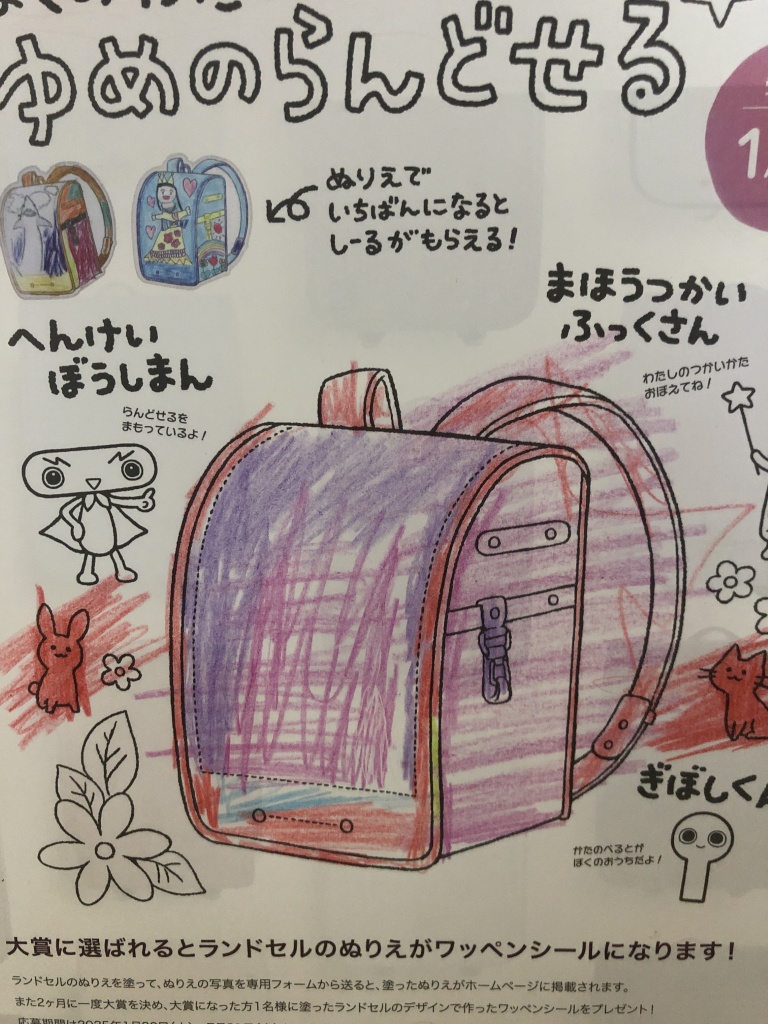 ゆめのらんどせる
ぬりえで
いちばんになると
しーるがもらえる!
まほうつかい
ふっくさん
わたしのつかいかた
おぼえてね!
へんけい
ぼうしまん
らんどせるを
まもっているよ!
ぎぼしくん
かたのべるとが
ぼくのおうちだよ!
大賞に選ばれるとランドセルのぬりえがワッペンシールになります!
ランドセルのぬりえを塗って、ぬりえの写真を専用フォームから送ると、塗ったぬりえがホームページに掲載されます。
また2ヶ月に一度大賞を決め、大賞になった方1名様に塗ったランドセルのデザインで作ったワッペンシールをプレゼント!